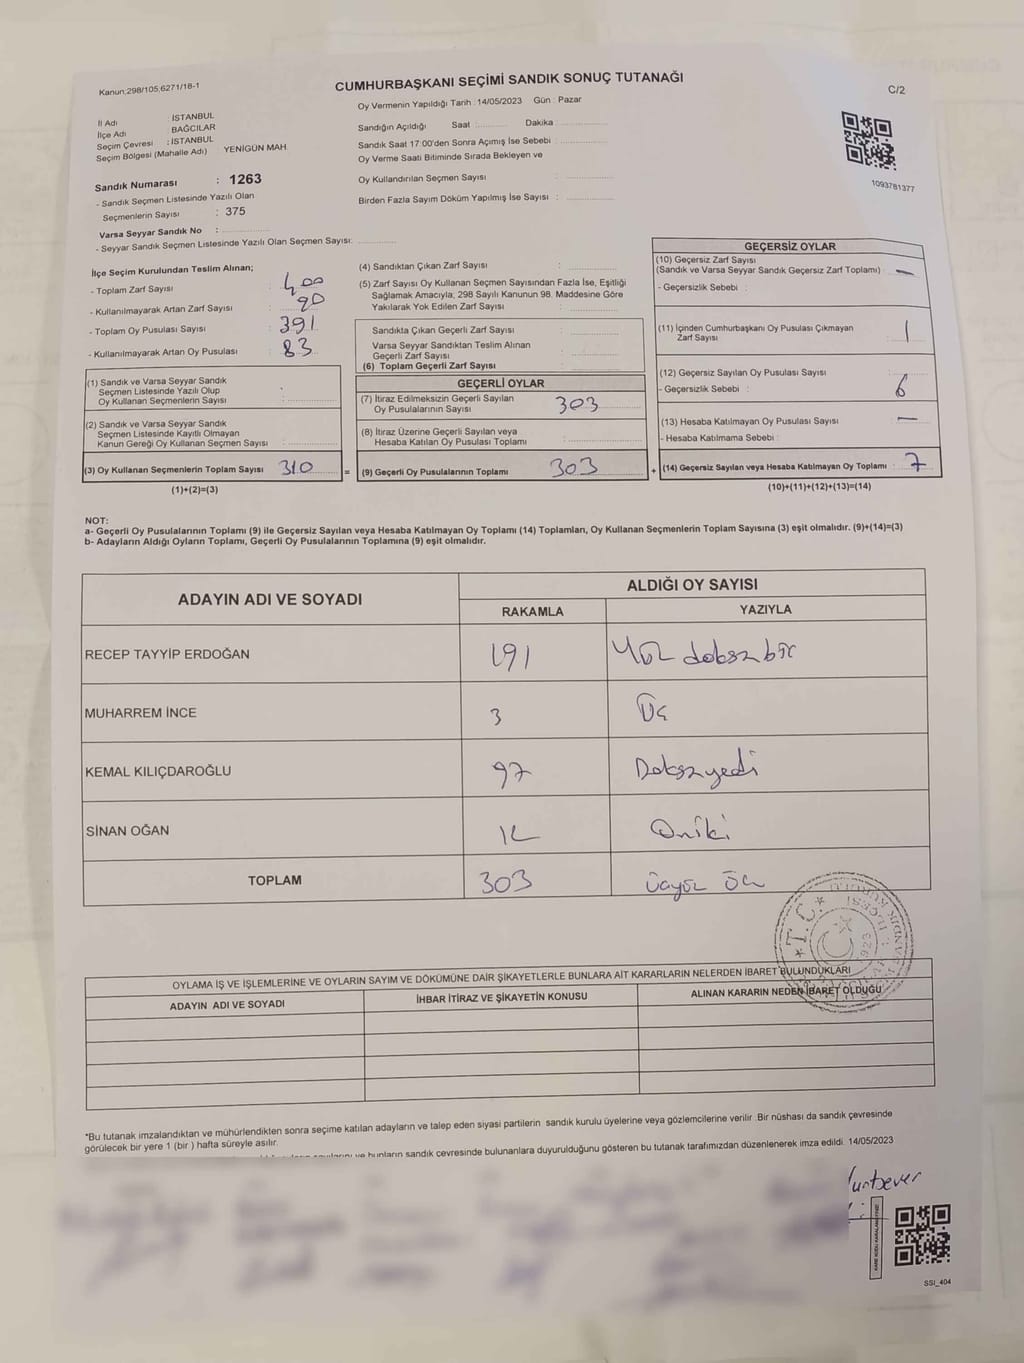 Kanun;298/105;6271/18-1
CUMHURBAŞKANI SEÇİMİ SANDIK SONUÇ TUTANAĞI
C/2
İl Adı : İSTANBUL
İlçe Adı : BAĞCILAR
Seçim Çevresi : İSTANBUL
Seçim Bölgesi (Mahalle Adı) : YENİGÜN MAH.
Sandık Numarası : 1263
- Sandık Seçmen Listesinde Yazılı Olan
Seçmenlerin Sayısı : 375
Varsa Seyyar Sandık No :
- Seyyar Sandık Seçmen Listesinde Yazılı Olan Seçmen Sayısı:
Oy Vermenin Yapıldığı Tarih : 14/05/2023 Gün : Pazar
Sandığın Açıldığı Saat : Dakika :
Sandık Saat 17:00'den Sonra Açımış İse Sebebi :
Oy Verme Saati Bitiminde Sırada Bekleyen ve
Oy Kullandırılan Seçmen Sayısı :
Birden Fazla Sayım Döküm Yapılmış İse Sayısı :
1093781377
İlçe Seçim Kurulundan Teslim Alınan;
- Toplam Zarf Sayısı : 400
- Kullanılmayarak Artan Zarf Sayısı : 90
- Toplam Oy Pusulası Sayısı : 391
- Kullanılmayarak Artan Oy Pusulası : 83
(1) Sandık ve Varsa Seyyar Sandık
Seçmen Listesinde Yazılı Olup
Oy Kullanan Seçmenlerin Sayısı :
(2) Sandık ve Varsa Seyyar Sandık
Seçmen Listesinde Kayıtlı Olmayan
Kanun Gereği Oy Kullanan Seçmen Sayısı :
(3) Oy Kullanan Seçmenlerin Toplam Sayısı 310 =
(1)+(2)=(3)
(4) Sandıktan Çıkan Zarf Sayısı :
(5) Zarf Sayısı Oy Kullanan Seçmen Sayısından Fazla İse, Eşitliği
Sağlamak Amacıyla, 298 Sayılı Kanunun 98. Maddesine Göre
Yakılarak Yok Edilen Zarf Sayısı :
Sandıkta Çıkan Geçerli Zarf Sayısı :
Varsa Seyyar Sandıktan Teslim Alınan
Geçerli Zarf Sayısı :
(6) Toplam Geçerli Zarf Sayısı :
GEÇERLİ OYLAR
(7) İtiraz Edilmeksizin Geçerli Sayılan
Oy Pusulalarının Sayısı 303
(8) İtiraz Üzerine Geçerli Sayılan veya
Hesaba Katılan Oy Pusulası Toplamı :
(9) Geçerli Oy Pusulalarının Toplamı 303 +
GEÇERSİZ OYLAR
(10) Geçersiz Zarf Sayısı
(Sandık ve Varsa Seyyar Sandık Geçersiz Zarf Toplamı) : —
- Geçersizlik Sebebi :
(11) İçinden Cumhurbaşkanı Oy Pusulası Çıkmayan
Zarf Sayısı : 1
(12) Geçersiz Sayılan Oy Pusulası Sayısı : 6
- Geçersizlik Sebebi :
(13) Hesaba Katılmayan Oy Pusulası Sayısı : —
- Hesaba Katılmama Sebebi :
(14) Geçersiz Sayılan veya Hesaba Katılmayan Oy Toplamı : 7
(10)+(11)+(12)+(13)=(14)
NOT:
a- Geçerli Oy Pusulalarının Toplamı (9) ile Geçersiz Sayılan veya Hesaba Katılmayan Oy Toplamı (14) Toplamları, Oy Kullanan Seçmenlerin Toplam Sayısına (3) eşit olmalıdır. (9)+(14)=(3)
b- Adayların Aldığı Oyların Toplamı, Geçerli Oy Pusulalarının Toplamına (9) eşit olmalıdır.
ADAYIN ADI VE SOYADI
ALDIĞI OY SAYISI
RAKAMLA YAZIYLA
RECEP TAYYİP ERDOĞAN 191 Yüz doksanbir
MUHARREM İNCE 3 Üç
KEMAL KILIÇDAROĞLU 97 Doksanyedi
SİNAN OĞAN 12 Oniki
TOPLAM 303 Üçyüz Üç
T.C.
OYLAMA İŞ VE İŞLEMLERİNE VE OYLARIN SAYIM VE DÖKÜMÜNE DAİR ŞİKAYETLERLE BUNLARA AİT KARARLARIN NELERDEN İBARET BULUNDUKLARI
ADAYIN ADI VE SOYADI İHBAR İTİRAZ VE ŞİKAYETİN KONUSU ALINAN KARARIN NEDEN İBARET OLDUĞU
*Bu tutanak imzalandıktan ve mühürlendikten sonra seçime katılan adayların ve talep eden siyasi partilerin sandık kurulu üyelerine veya gözlemcilerine verilir .Bir nüshası da sandık çevresinde
görülecek bir yere 1 (bir ) hafta süreyle asılır.
ve bunların sandık çevresinde bulunanlara duyurulduğunu gösteren bu tutanak tarafımızdan düzenlenerek imza edildi. 14/05/2023
SSI_404